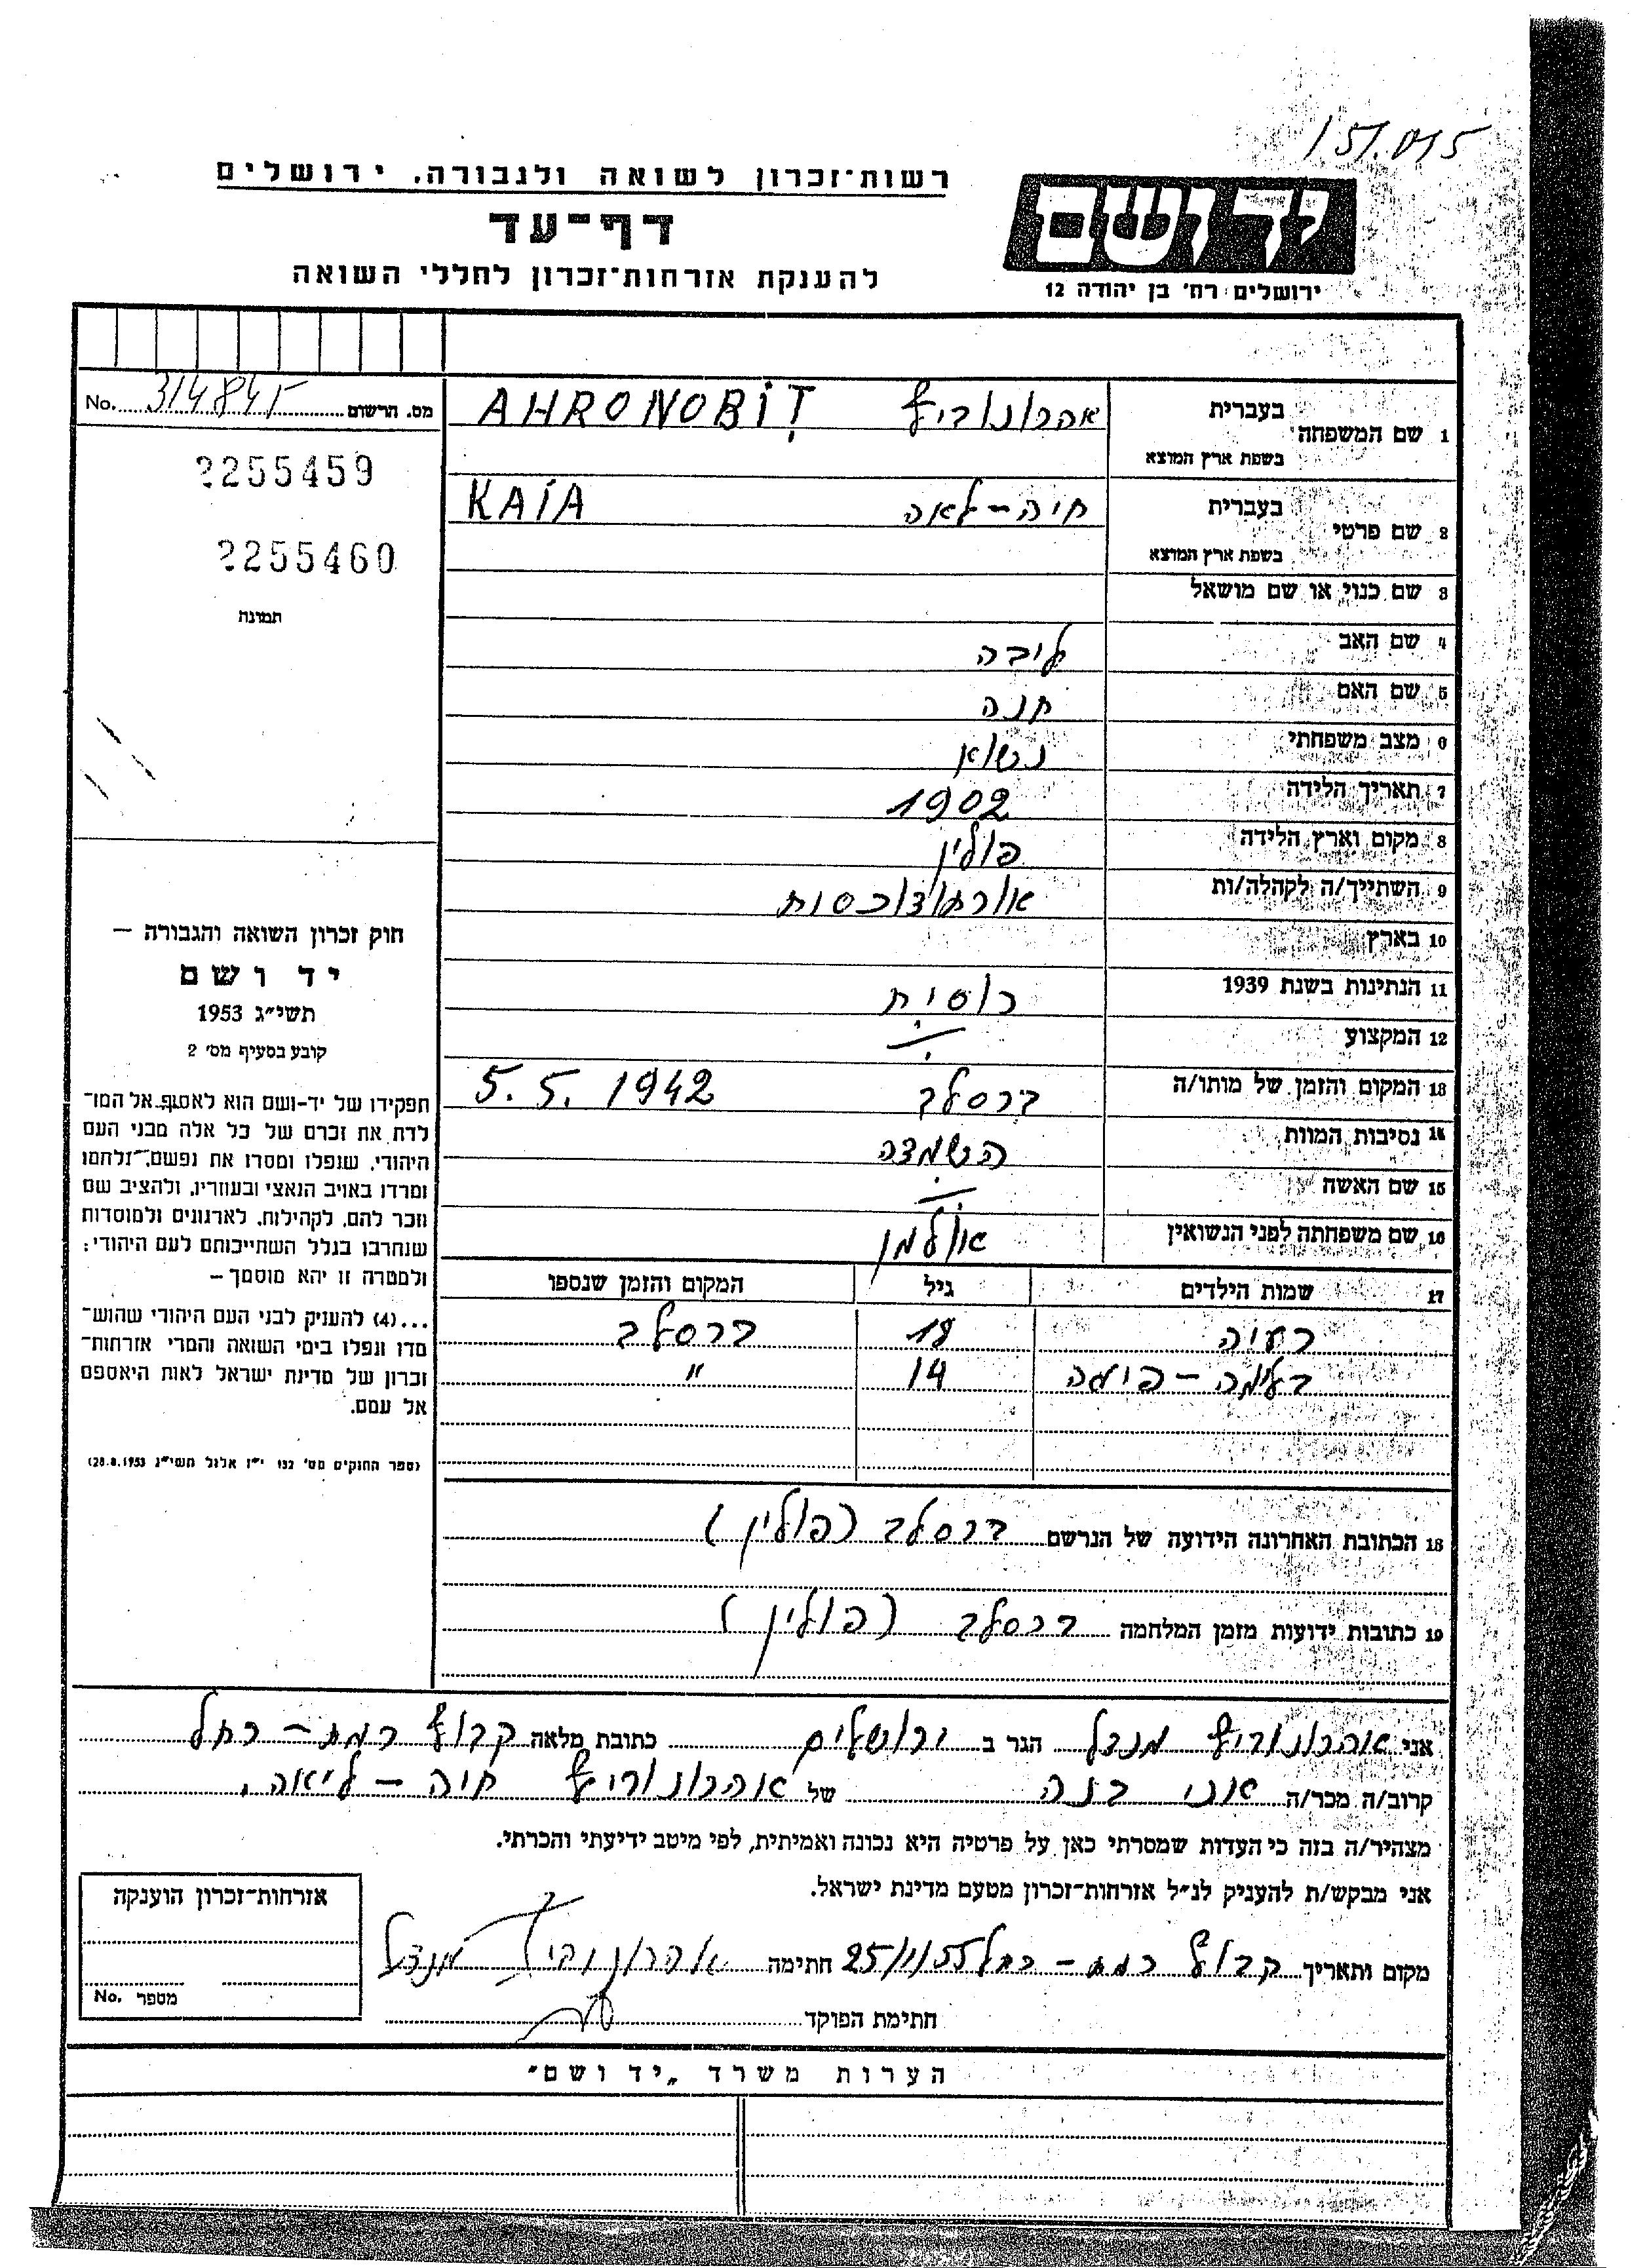 151.015
רשות־זכרון לשואה ולגבורה, ירושלים
דף־עד
להענקת אזרחות־זכרון לחללי השואה
יד ושם
ירושלים רח׳ בן יהודה 12
מס. הרשום 314845 No.
2255459
2255460
תמונת
חוק זכרון השואה והגבורה —
יד ושם
תשי״ג 1953
קובע בסעיף מס׳ 2
תפקידו של יד-ושם הוא לאסוף אל המו־
לדת את זכרם של כל אלה מבני העם
היהודי, שנפלו ומסרו את נפשם, נלחמו
ומרדו באויב הנאצי ובעוזריו, ולהציב שם
וזכר להם, לקהילות, לארגונים ולמוסדות
שנחרבו בגלל השתייכותם לעם היהודי;
ולמטרה זו יהא מוסמך —
...(4) להעניק לבני העם היהודי שהוש־
מדו ונפלו בימי השואה והמרי אזרחות־
זכרון של מדינת ישראל לאות היאספם
אל עמם.
(ספר החוקים מס׳ 132 י״ז אלול תשי״ג 28.8.1953)
1 שם המשפחה בעברית אהרונוביץ AHRONOBIȚ
בשפת ארץ המוצא
2 שם פרטי בעברית חיה-לאה KAIA
בשפת ארץ המוצא
3 שם כנוי או שם מושאל
4 שם האב ליבה
5 שם האם חנה
6 מצב משפחתי נשוא
7 תאריך הלידה 1902
8 מקום וארץ הלידה פולין
9 השתייך/ה לקהלה/ות אורתודוכסות
10 בארץ
11 הנתינות בשנת 1939 רוסית
12 המקצוע
13 המקום והזמן של מותו/ה ברסלב 5.5.1942
14 נסיבות המוות השמדה
15 שם האשה
16 שם משפחתה לפני הנשואין אולמן
17 שמות הילדים גיל המקום והזמן שנספו
רעיה 18 ברסלב
פיגה 14 "
18 הכתובת האחרונה הידועה של הנרשם ברסלב (פולין)
19 כתובות ידועות מזמן המלחמה ברסלב (פולין)
אני אהרונוביץ מנדל הגר ב ירושלים כתובת מלאה קבוץ רמת-רחל
קרוב/ה מכר/ה אני בנה של אהרונוביץ חיה-ליאה.
מצהיר/ה בזה כי העדות שמסרתי כאן על פרטיה היא נכונה ואמיתית, לפי מיטב ידיעתי והכרתי.
אני מבקש/ת להעניק לנ״ל אזרחות־זכרון מטעם מדינת ישראל.
מקום ותאריך קבוץ רמת-רחל 25/1/55 חתימה אהרונוביץ מנדל
חתימת הפוקד
אזרחות־זכרון הוענקה
מספר No.
הערות משרד „יד ושם״